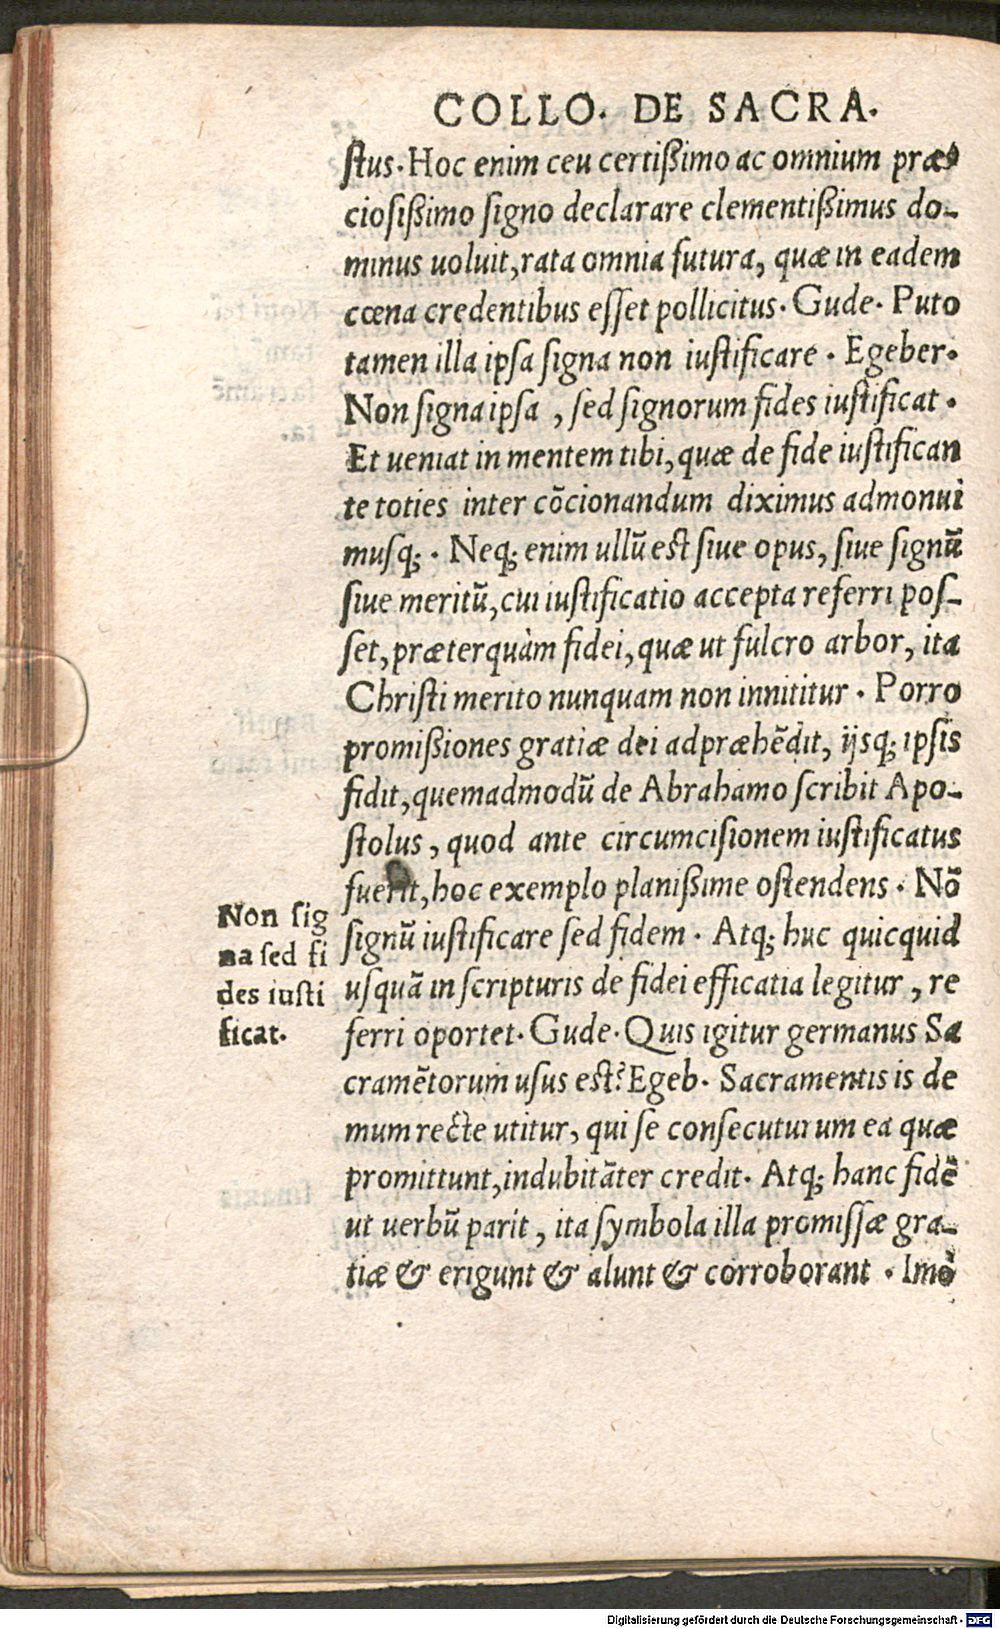 COLLO. DE SACRA.
ſtus. Hoc enim ceu certißimo ac omnium præ
cioſißimo ſigno declarare clementißimus do-
minus uoluit, rata omnia futura, quæ in eadem
cœna credentibus eſſet pollicitus. Gude. Puto
tamen illa ipſa ſigna non iuſtificare. Egeber.
Non ſigna ipſa, ſed ſignorum fides iuſtificat.
Et ueniat in mentem tibi, quæ de fide iuſtifican
te toties inter cōcionandum diximus admonui
muſq;. Neq; enim ullū eſt ſiue opus, ſiue ſignū
ſiue meritū, cui iuſtificatio accepta referri poſ-
ſet, præterquàm fidei, quæ ut fulcro arbor, ita
Chriſti merito nunquam non innititur. Porro
promißiones gratiæ dei adpræhēdit, ijsq; ipſis
fidit, quemadmodū de Abrahamo ſcribit Apo-
ſtolus, quod ante circumciſionem iuſtificatus
fuerit, hoc exemplo planißime oſtendens. Nō
ſignū iuſtificare ſed fidem. Atq; huc quicquid
uſquā in ſcripturis de fidei efficatia legitur, re
ferri oportet. Gude. Quis igitur germanus Sa
cramētorum uſus eſt? Egeb. Sacramentis is de
mum recte utitur, qui ſe conſecuturum ea quæ
promittunt, indubitāter credit. Atq; hanc fidē
ut uerbū parit, ita ſymbola illa promiſſæ gra-
tiæ & erigunt & alunt & corroborant. Imò
Non ſig
na ſed fi
des iuſti
ficat.
Digitalisierung gefördert durch die Deutsche Forschungsgemeinschaft - DFG